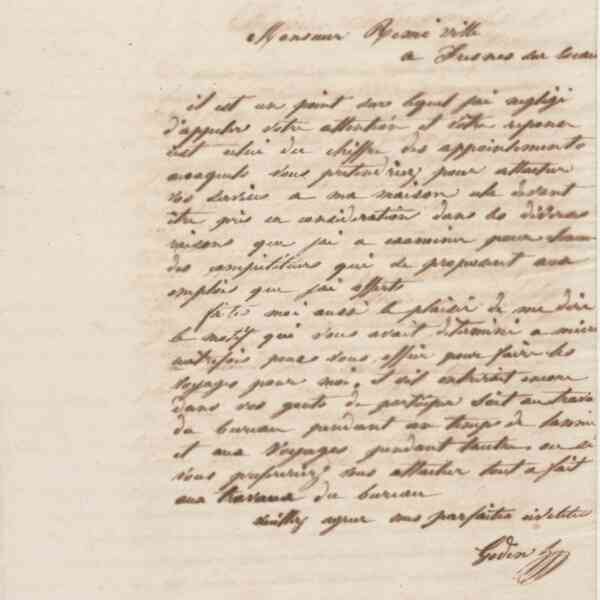 Monsieur René ville
a Fresnes sur
il est un point sur lequel j'ai negligé
d'appeler votre attention et votre reponse
c'est celui du chiffre des appointements
auxquels vous pretendriez pour attacher
vos services a ma maison cela devant
être pris en considération dans les diverses
raisons que j'ai a examiner pour
des compétiteurs qui se proposent aux
emplois que j'ai offerts
faites moi aussi le plaisir de me dire
le motif qui vous avait déterminé a
autrefois pour vous offrir pour faire les
voyages pour moi. et s'il entrerait encore
dans vos gouts de participer soit au
du bureau pendant un temps de
et aux voyages pendant l'autre. ou si
vous prefereriez vous attacher tout a fait
aux travaux du bureau
veuillez agreer mes parfaites
Godin